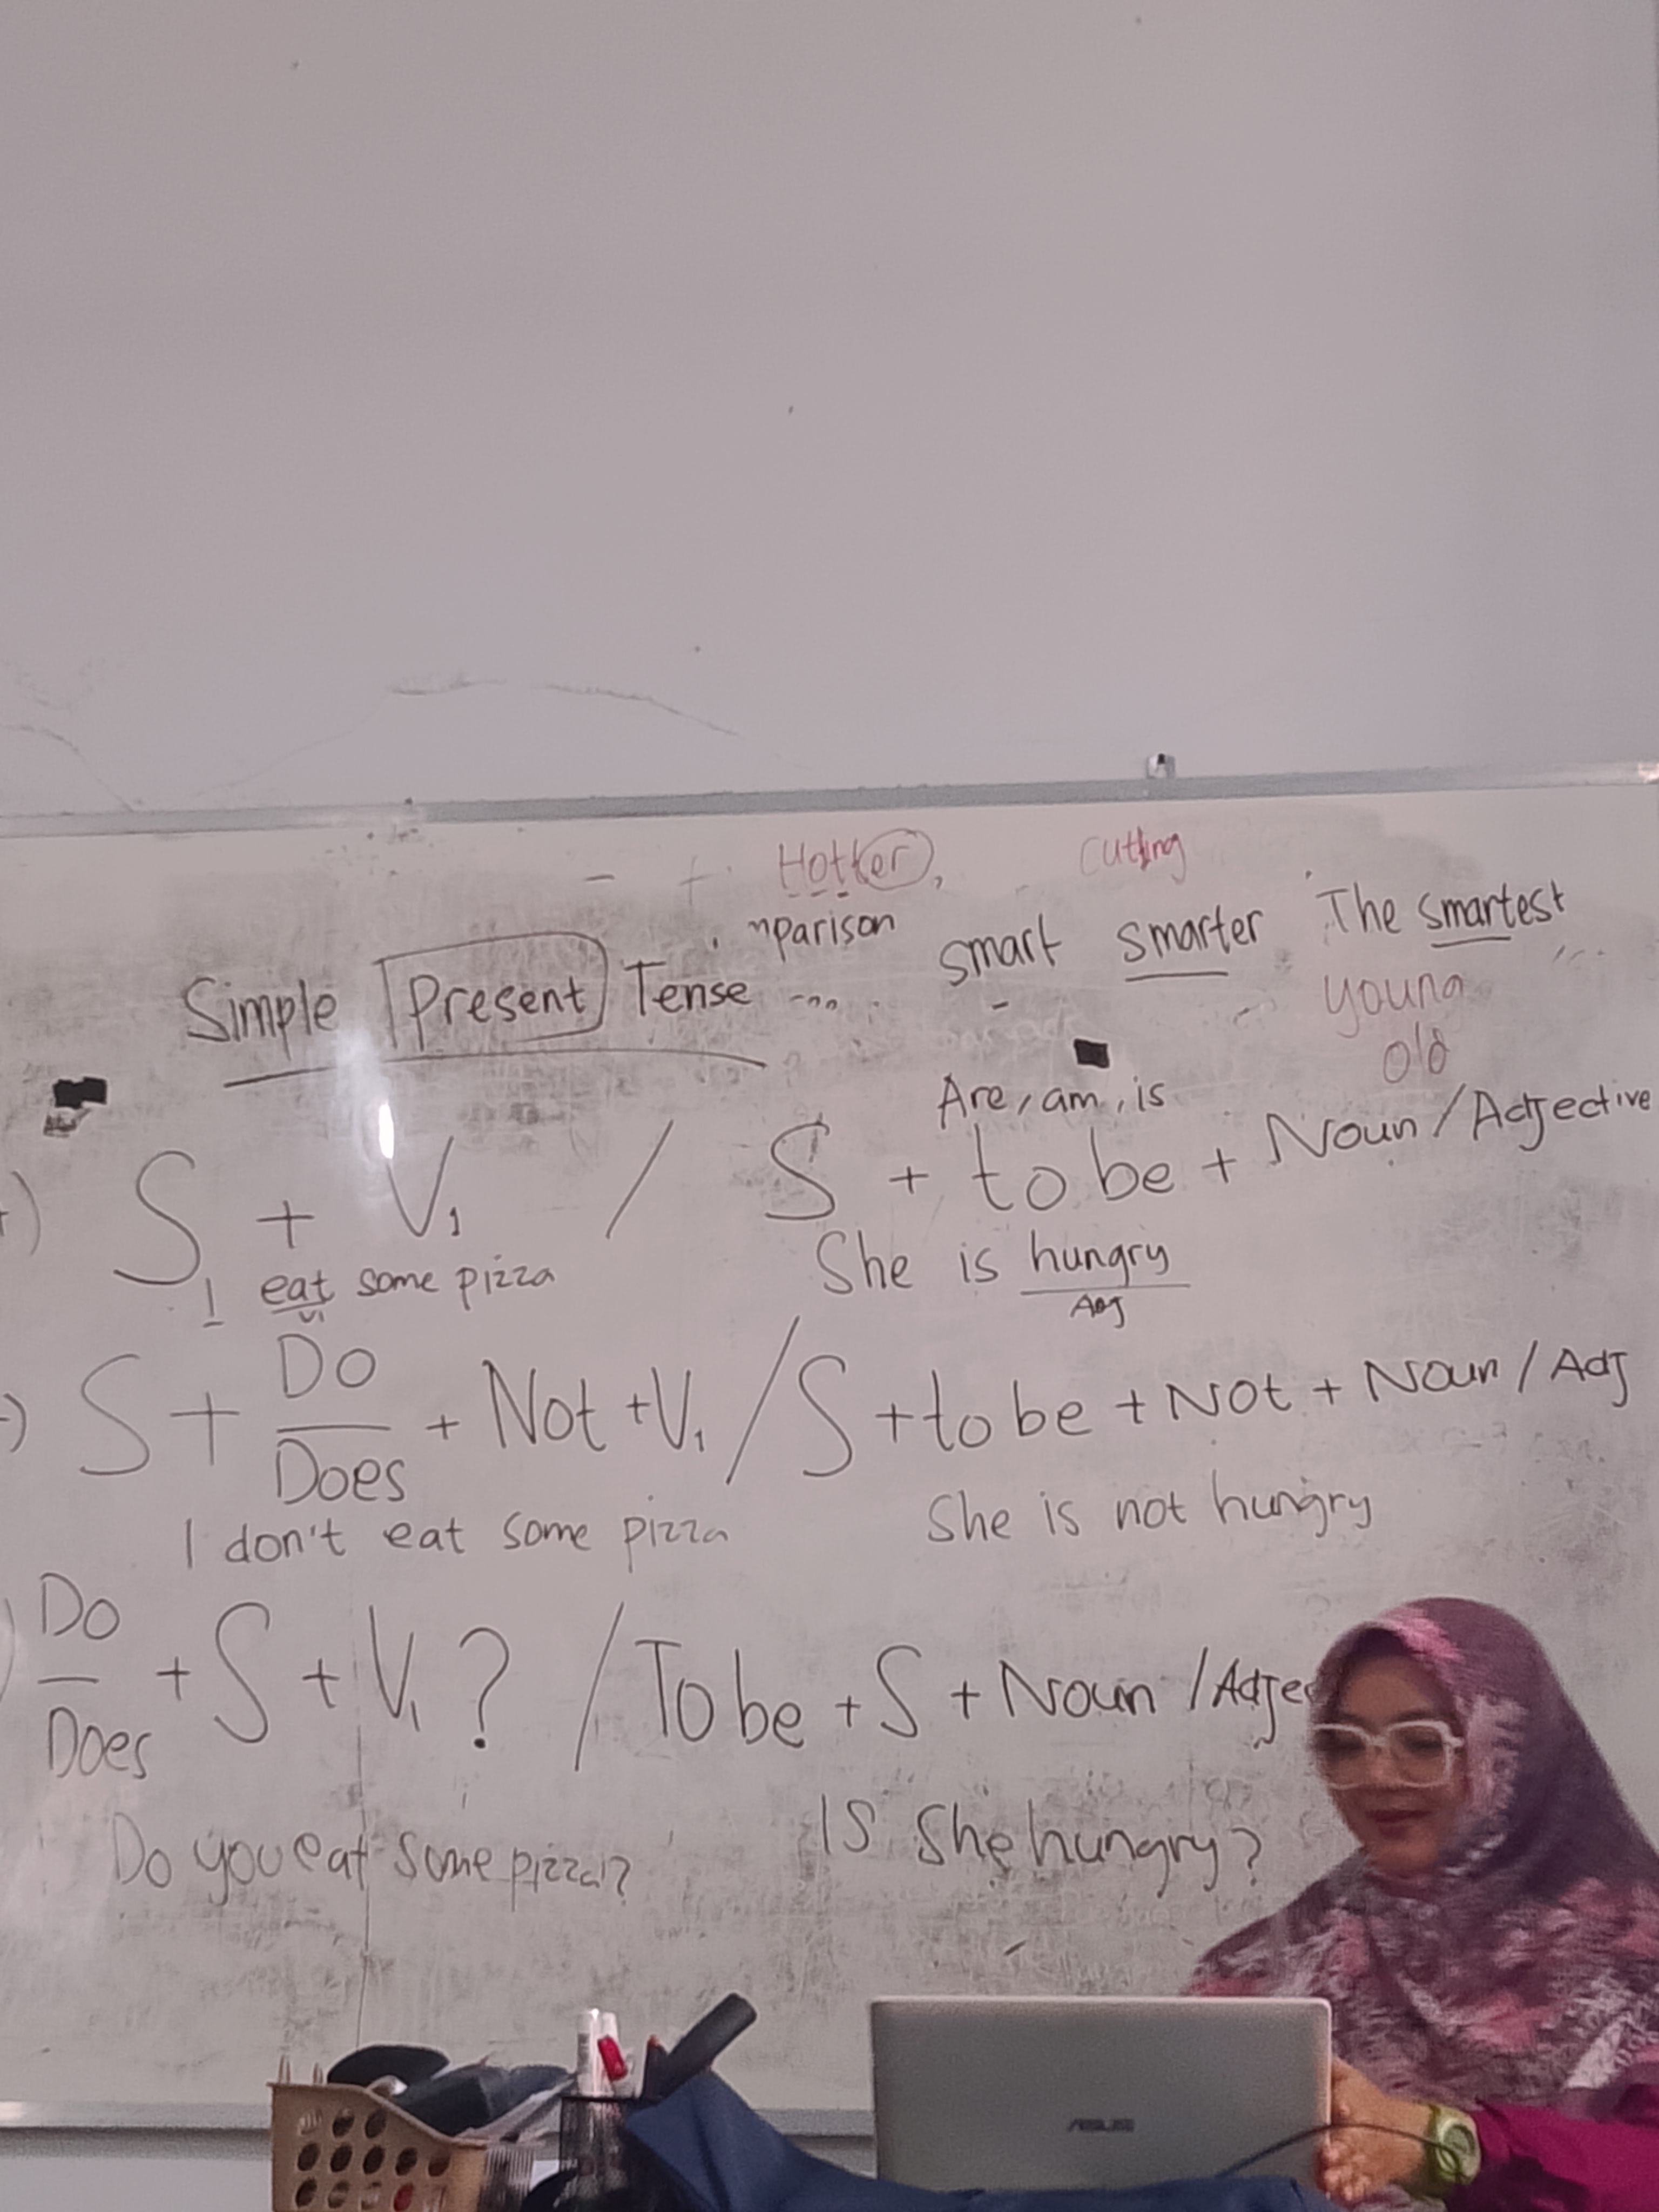 Hotter, cutting
nparison smart smarter The smartest
Simple Present Tense ....
young
old
Are, am, is
+) S + V1 / S + to be + Noun / Adjective
I eat some pizza She is hungry
V1 Adj
-) S + Do + Not + V1 / S + to be + Not + Noun / Adj
Does
I don't eat some pizza She is not hungry
Do
) + S + V1 ? / To be + S + Noun / Adjec
Does
Do you eat some pizza? Is she hungry?
ASUS